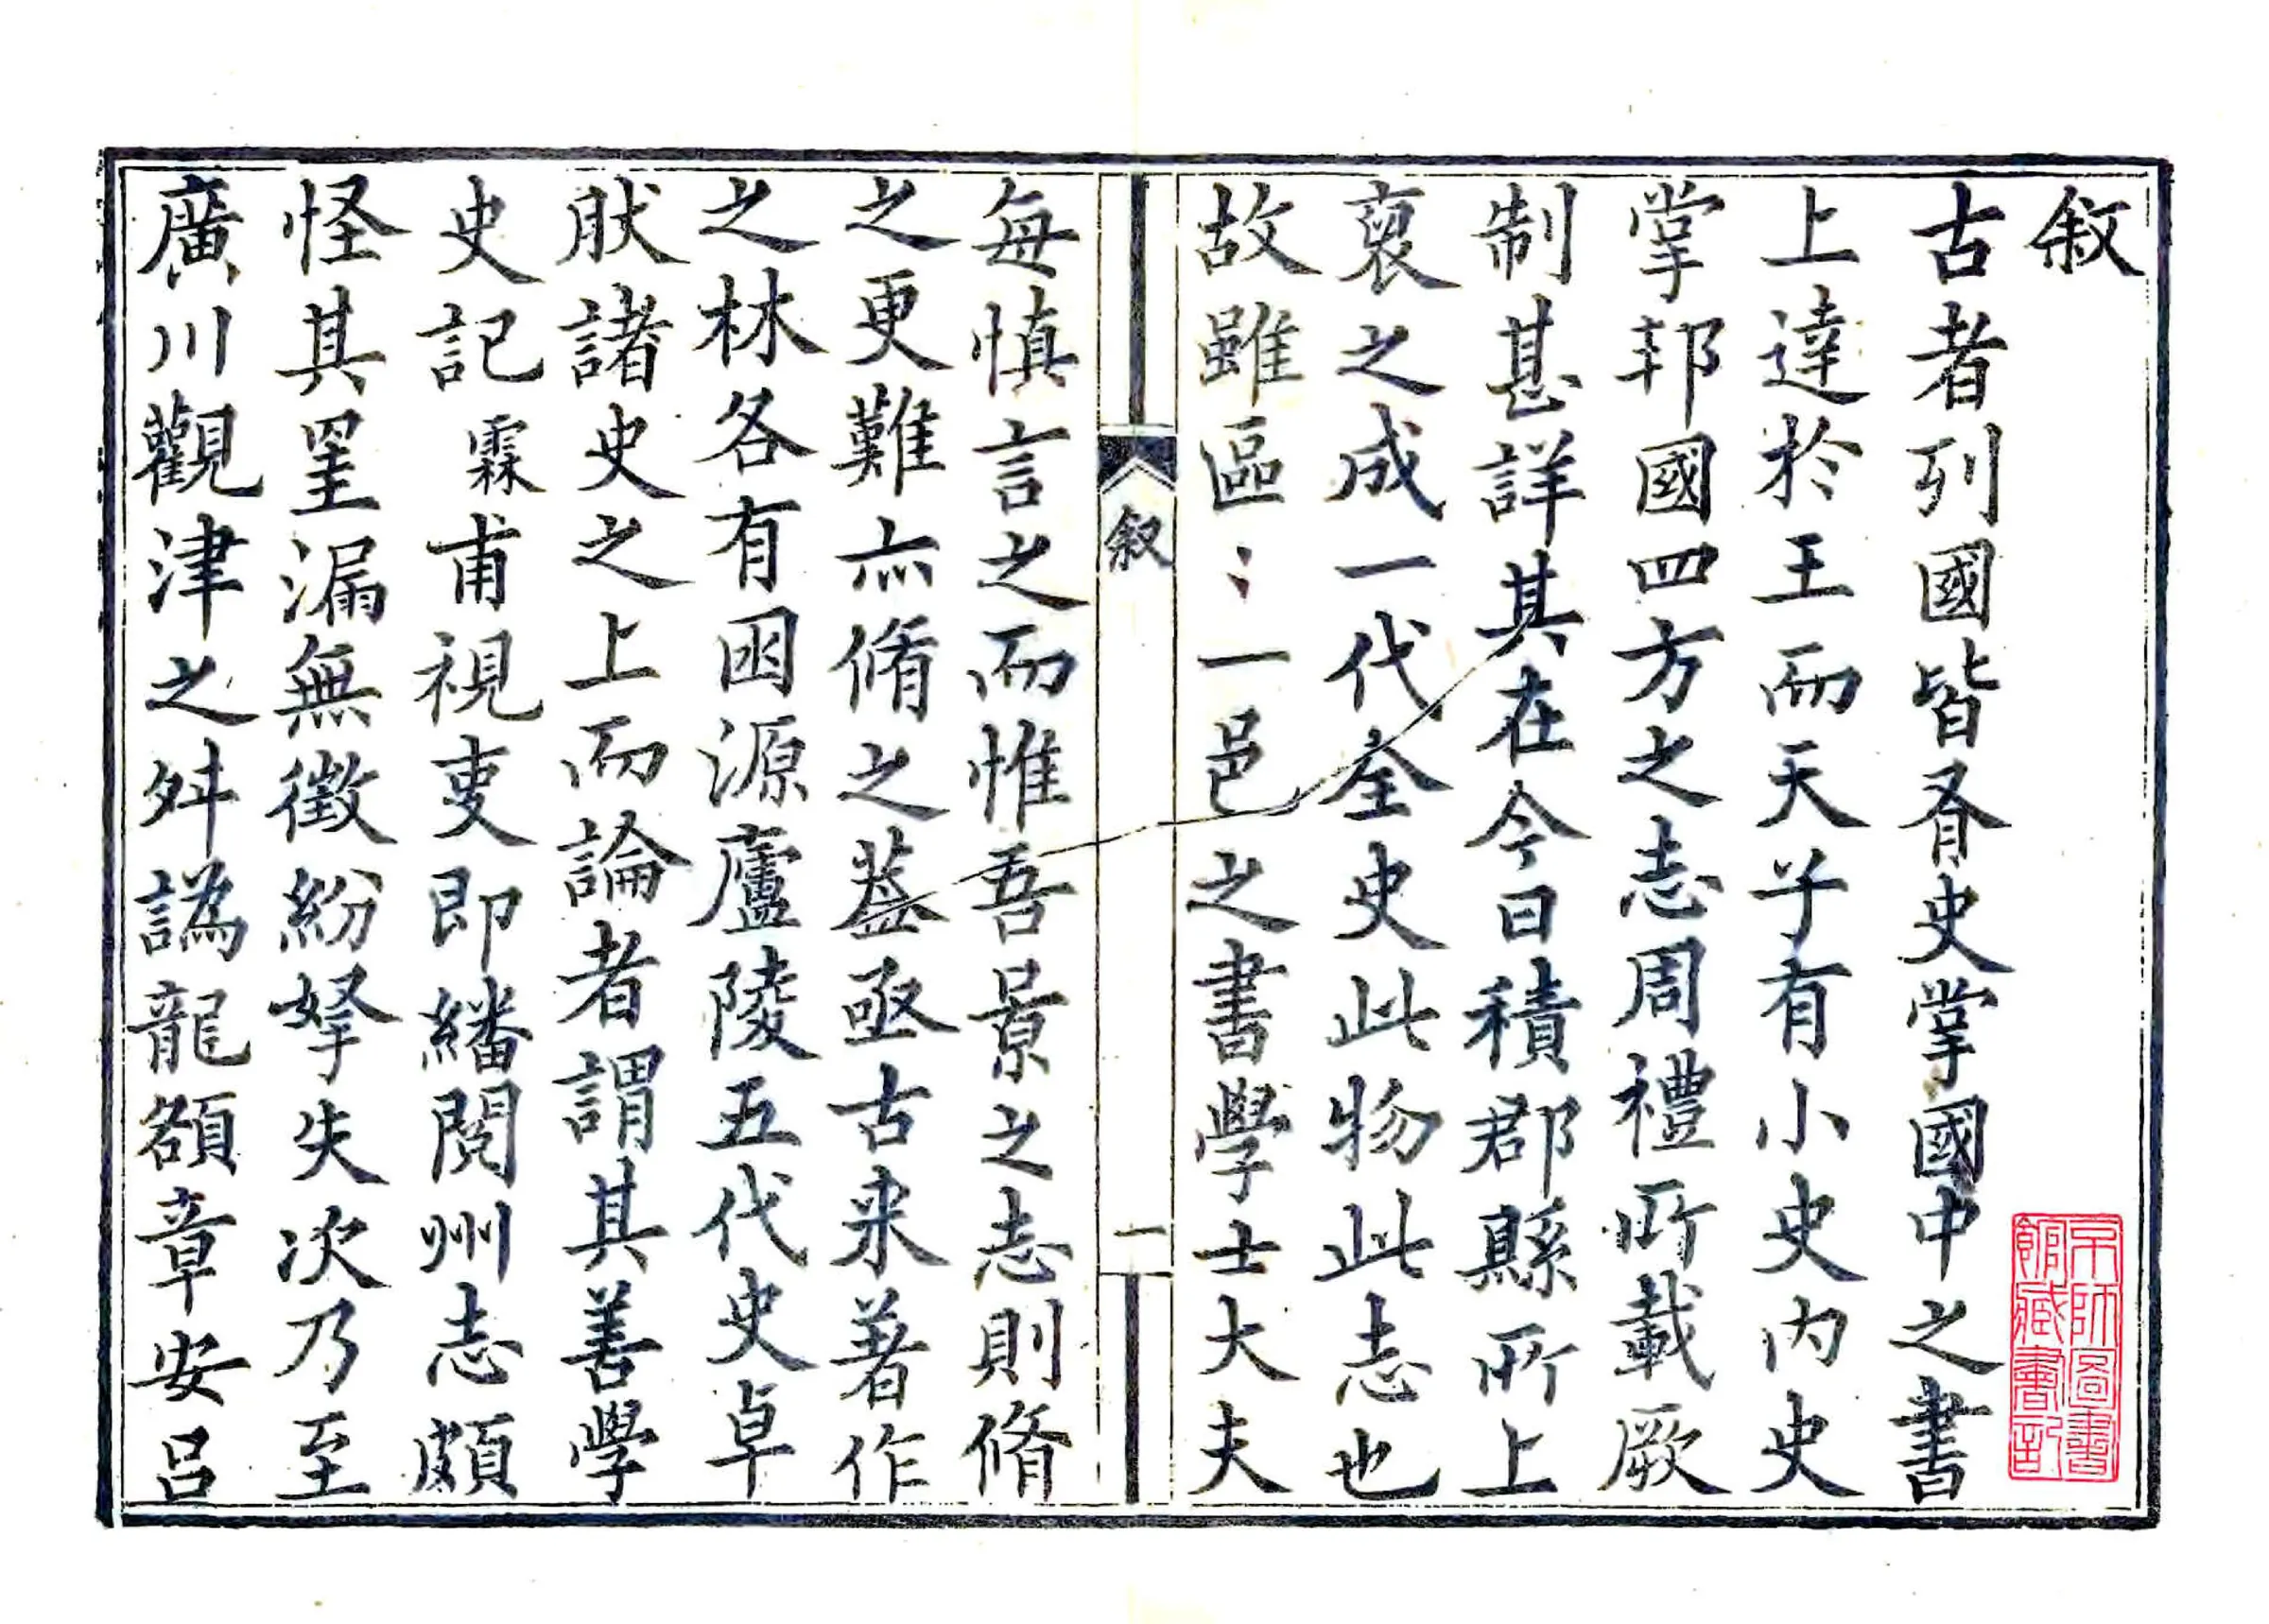 叙
古者列國皆有史掌國中之書
上達於王而天子有小史内史
掌邦國四方之志周禮所載厥
制甚詳其在今日積郡縣所上
裒之成一代全史此物此志也
故雖區〻一邑之書學士大夫
叙
一
每慎言之而惟吾景之志則脩
之更難亦脩之蓋亟古来著作
之林各有因源廬陵五代史卓
肰諸史之上而論者謂其善學
史記霖甫視叓即繙閱州志頗
怪其罣漏無徵紛拏失次乃至
廣川觀津之舛譌龍額章安吕
京師圖書
館藏書記